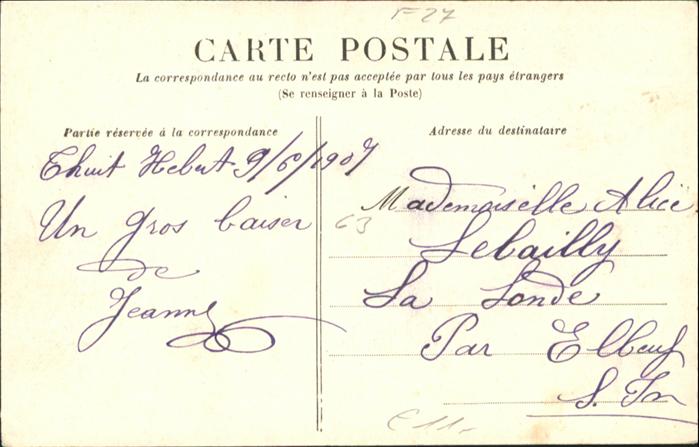 F27
CARTE POSTALE
La correspondance au recto n'est pas acceptée par tous les pays étrangers
(Se renseigner à la Poste)
Partie réservée à la correspondance
Thuit Hebert 9/6/1907
Un gros baiser
de
Jeanne
Adresse du destinataire
63
Mademoiselle Alice
Lebailly
La Londe
Par Elbeuf
S. Inf
€11-